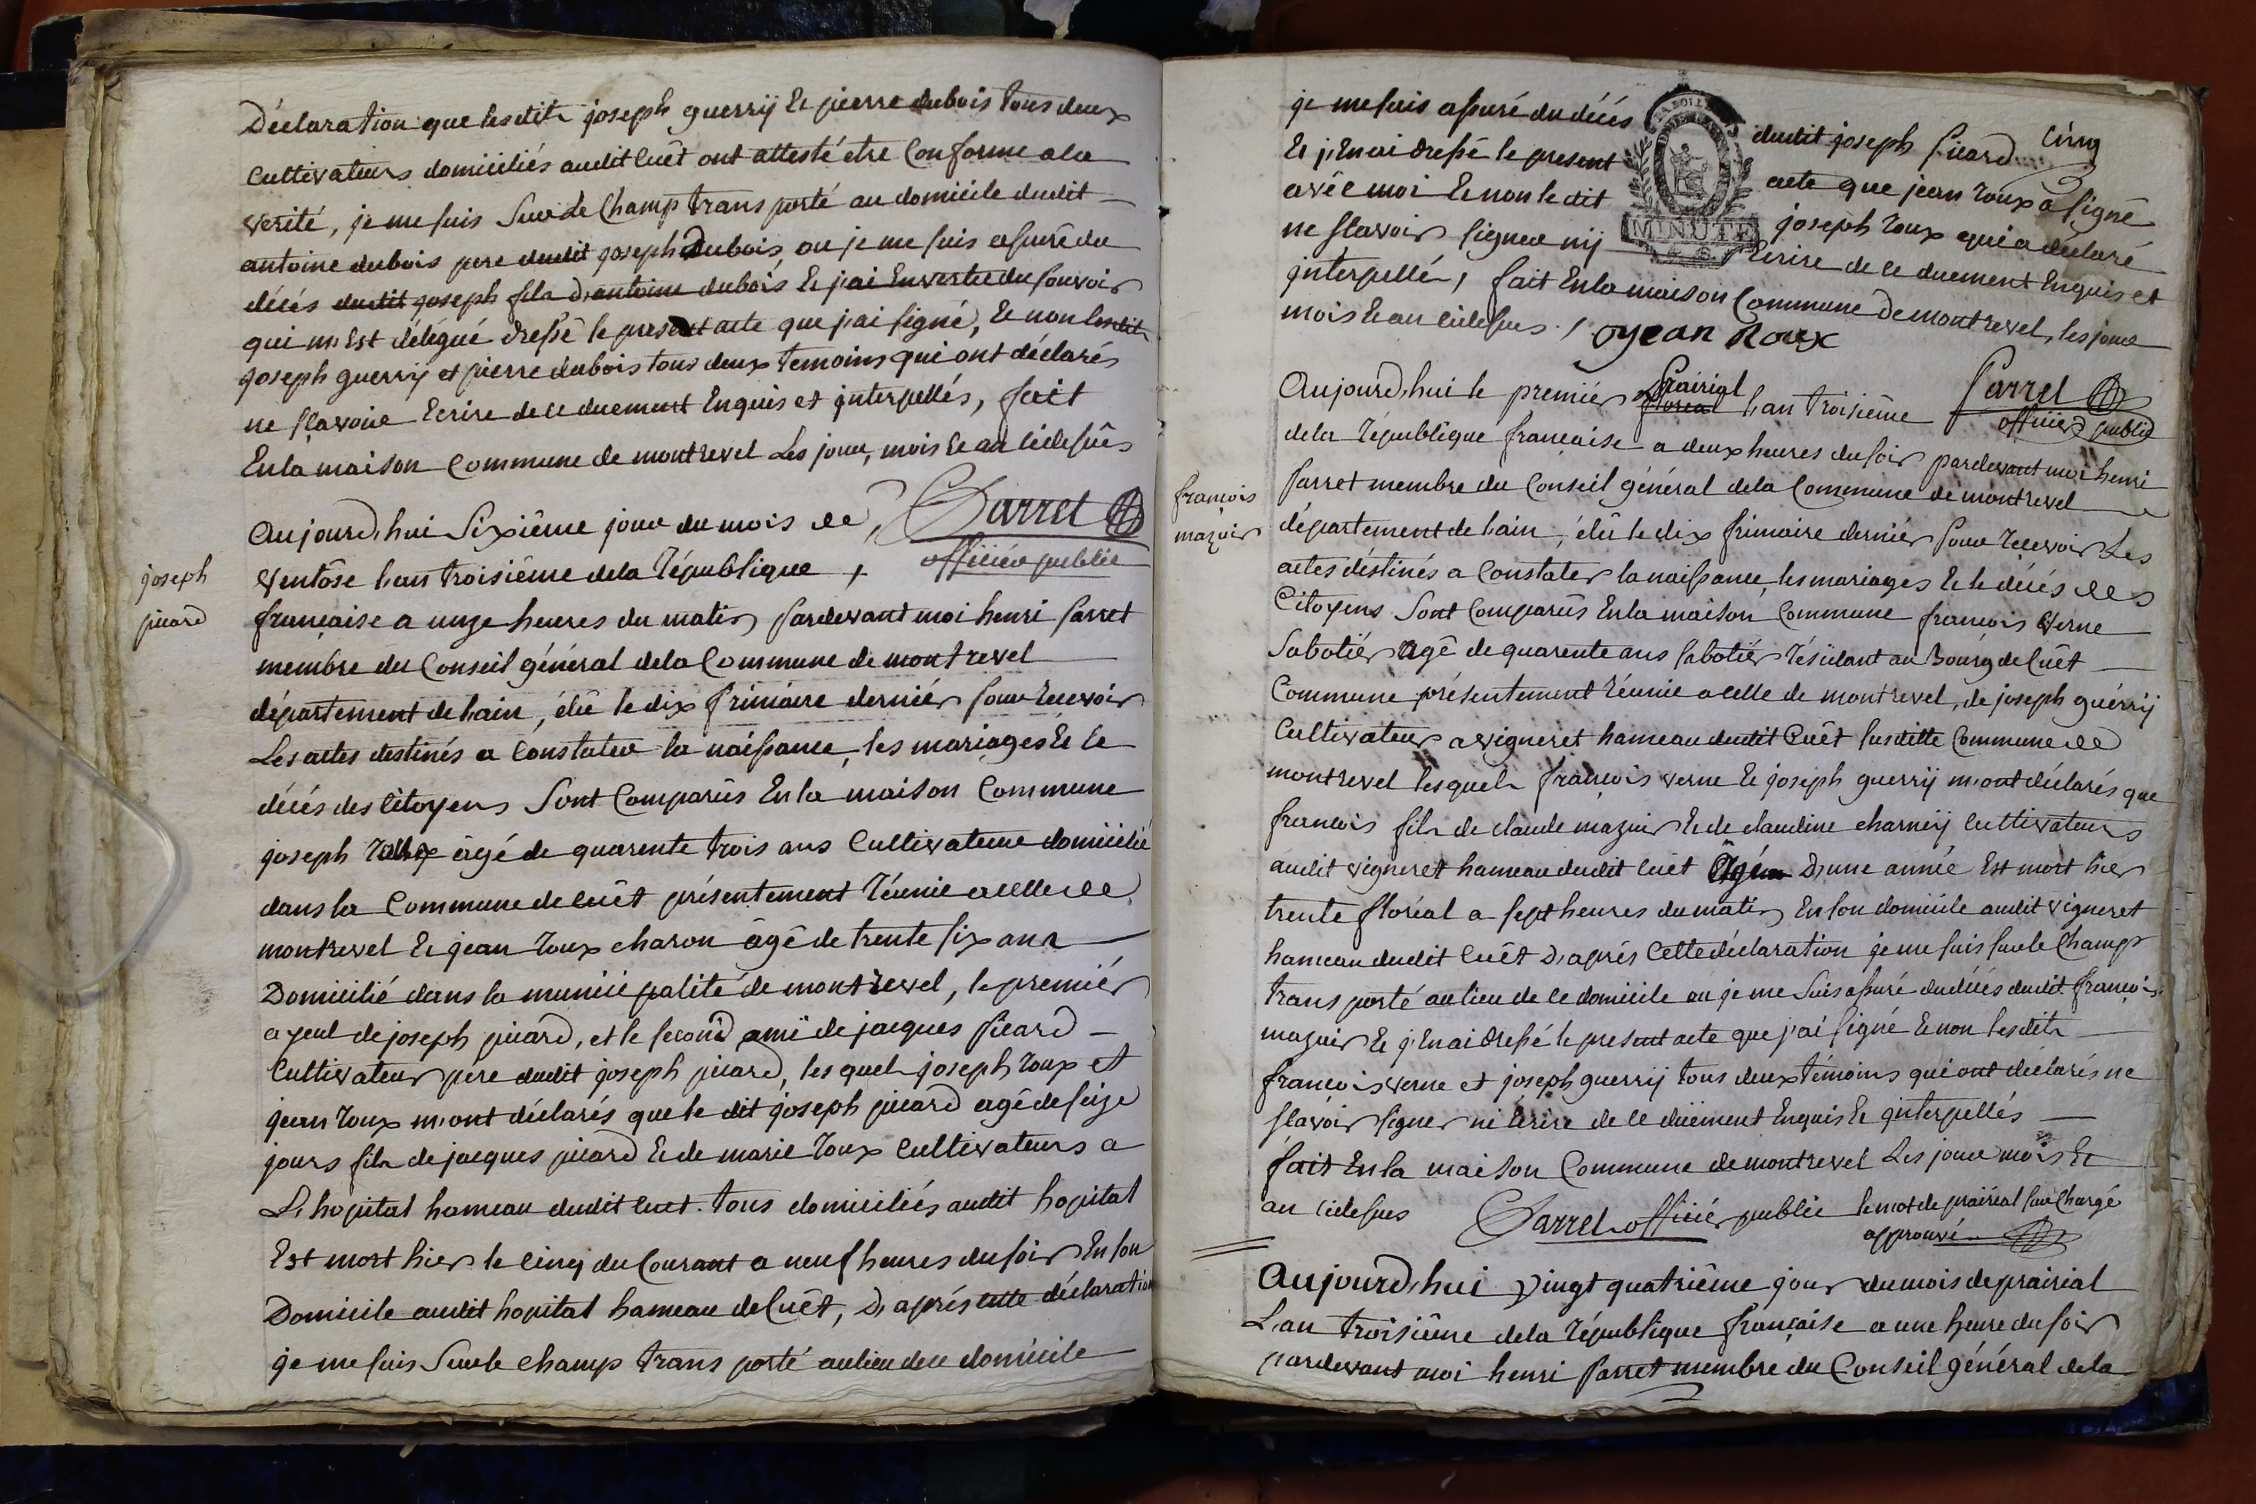 Déclaration que lesdits joseph guerrÿ Et pierre dubois tous deux
cultivateurs domiciliés audit Cuêt ont attesté etre Conforme a la
verité, je me suis Sur le Champ trans porté au domicile dudit
antoine dubois pere dudit joseph Dubois, ou je me suis assuré du
décés dudit joseph fils D'antoine dubois Et j'ai En vertu du pouvoir
qui m'Est délégué dressé le present acte que j'ai signé, Et non lesdits
joseph guerrÿ et pierre dubois tous deux temoins qui ont déclarés
ne sçavoir Ecrire de ce duement Enquis et jnterpellés, fait
En la maison Commune de montrevel Les jour, mois Et an cidessus
Aujourd'hui Sixième jour du mois de Parret
ventôse l'an troisième de la République officier public
joseph
picard
française a unze heures du matin pardevant moi henri parret
membre du Conseil général de la Commune de montrevel
département de l'ain, élu le dix frimaire derniér pour recevoir
Les actes destinés a Constater la naissance, les mariages Et le
décés des Citoyens Sont Comparus En la maison Commune
joseph roux âgé de quarente trois ans Cultivateur domicilié
dans la Commune de Cuêt présentement réunie a celle de
montrevel Et jean roux charon âgé de trente six ans
Domicilié dans la municipalité de montrevel, le premiér
ayeul de joseph picard, et le second ami de jacques picard
Cultivateur pere dudit joseph picard, lesquels joseph roux et
jean roux m'ont déclarés que le dit joseph picard agé de seize
jours fils de jacques picard Et de marie roux Cultivateurs a
L'hopital hameau dudit Cuet. tous domiciliés audit hopital
Est mort hier le cinq du Courant a neuf heures du soir En son
Domicile audit hopital hameau de Cuêt, D'aprés cette déclaration
je me suis Sur le champ trans porté au lieu de ce domicile
Cinq
je me suis assuré du décés dudit joseph picard
Et j'En ai dressé le present acte que jean roux a signé
avéc moi Et non le dit joseph roux qui a declaré
ne sçavoir signer nÿ Ecrire de ce duement Enquis et
MINUTE
jnterpellé, fait En la maison Commune de montrevel, les jour
mois Et an cidessus. jean Roux
Parret
officier public
Aujourd'hui le premiér Prairial floreal l'an troisième
de la république française a deux heures du soir pardevant moi henri
françois
mazuir
parret membre du Conseil général de la Commune de montrevel
département de l'ain, élû le dix frimaire derniér pour recevoir Les
actes déstinés a Constater la naissance, les mariages Et le décés des
Citoyens Sont Comparûs En la maison Commune françois verne
Sabotiér agé de quarente ans sabotiér résidant au Bourg de Cuêt
Commune présentement réunie a celle de montrevel, de joseph guérrÿ
Cultivateur a vigneret hameau dudit Cuêt susditte Commune de
montrevel lesquels françois verne Et joseph guerrÿ m'ont déclarés que
françois fils de claude mazuir Et de claudine charneÿ cultivateurs
audit vigneret hameau dudit Cuêt Agé D'une année Est mort hier
trente floréal a sept heures du matin En son domicile audit vigneret
hameau dudit Cuêt D'aprés Cette déclaration je me suis sur le Champ
trans porté au lieu de ce domicile ou je me Suis assuré du décés dudit françois
mazuir Et j'En ai dressé le present acte que j'ai signé Et non lesdits
françois verne et joseph guerrÿ tous deux témoins qui ont déclarés ne
sçavoir signer ni Ecrire de ce düement Enquis Et jnterpellés
fait En la maison Commune de montrevel Les jour mois Et
an cidessus Parret officiér public le mot de prairial sur Chargé
approuvé
Aujourd'hui vingt quatrième jour du mois de prairial
L'an troisième de la république française a une heure du soir
pardevant moi henri parret membre du Conseil général de la